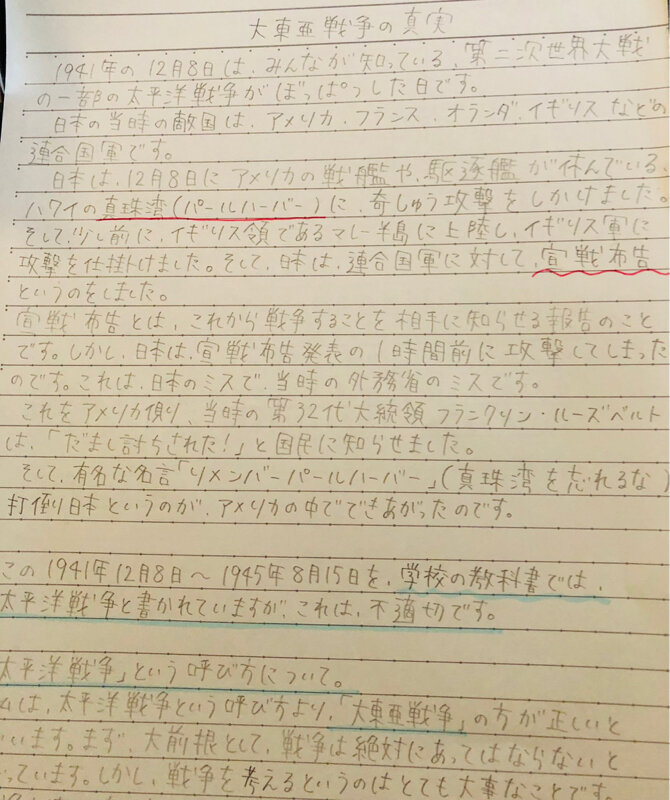 大東亜戦争の真実
1941年の12月8日は、みんなが知っている、第二次世界大戦
の一部の太平洋戦争がぼっぱつした日です。
日本の当時の敵国は、アメリカ、フランス、オランダ、イギリスなどの
連合国軍です。
日本は、12月8日にアメリカの戦艦や、駆逐艦が休んでいる、
ハワイの真珠湾(パールハーバー)に、奇しゅう攻撃をしかけました。
そして、少し前に、イギリス領であるマレー半島に上陸し、イギリス軍に
攻撃を仕掛けました。そして、日本は、連合国軍に対して、宣戦布告
というのをしました。
宣戦布告とは、これから戦争することを相手に知らせる報告のこと
です。しかし、日本は、宣戦布告発表の1時間前に攻撃してしまった
のです。これは、日本のミスで、当時の外務省のミスです。
これをアメリカ側り、当時の第32代大統領フランクリン・ルーズベルト
は、「だまし討ちされた!」と国民に知らせました。
そして、有名な名言「リメンバーパールハーバー」(真珠湾を忘れるな)
打倒り日本というのが、アメリカの中でできあがったのです。
この1941年12月8日～1945年8月15日を、学校の教科書では、
太平洋戦争と書かれていますが、これは、不適切です。
太平洋戦争」という呼び方について。
は、太平洋戦争という呼び方より、「大東亜戦争」の方が正しいと
います。まず、大前根として、戦争は絶対にあってはならないと
っています。しかし、戦争を考えるというのはとても大事なことです。